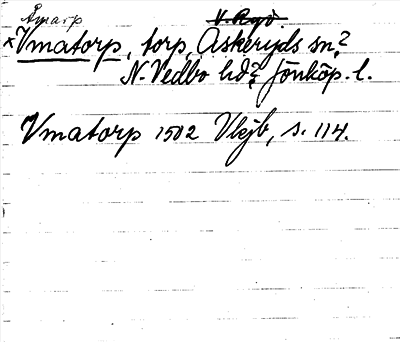 Åmarp
×Vmatorp, torp, Askeryds sn?
N. Vedbo hd? Jönköp. l.
Vmatorp 1502 Vkjb, s. 114.